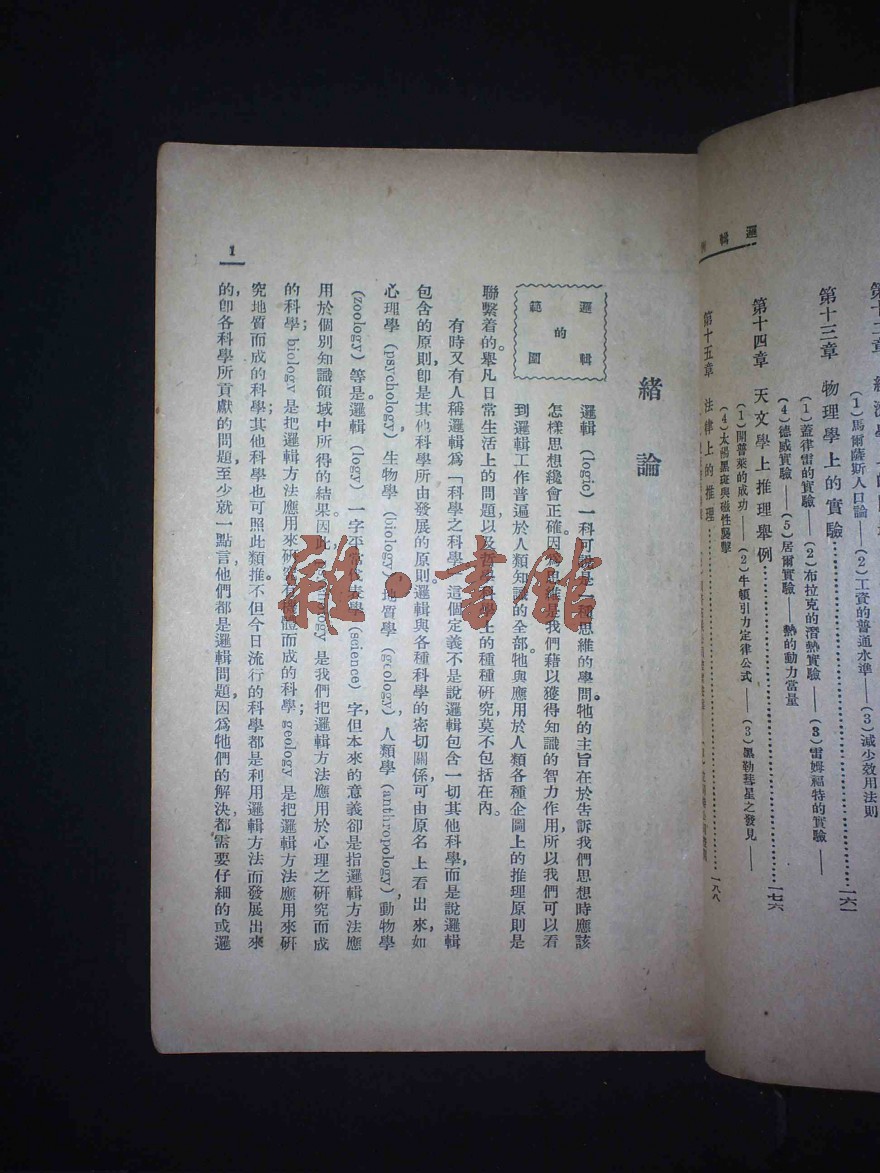 第十三章 物理學上的實驗 一六一
(1)馬爾薩斯人口論——(2)工資的普通水準——(3)減少效用法則
(1)蓋律雷的實驗——(2)布拉克的潛熱實驗——(3)雷姆福特的實驗——
(4)德威實驗——(5)居爾實驗——熱的動力當量
第十四章 天文學上推理舉例 一七六
(1)開普萊的成功——(2)牛頓引力定律公式——(3)黑勒彗星之發見——
(4)太陽黑斑與磁性襲擊
第十五章 法律上的推理 一八八
邏輯
緒論
邏輯的範圍
邏輯(logic)一科可 是一種思維的學問。牠的主旨在於告訴我們思想時應該
怎樣思想纔會正確。因爲思維是我們藉以獲得知識的智力作用,所以我們可以看
到邏輯工作普遍於人類知識的全部。牠與應用於人類各種企圖上的推理原則是
聯繫着的。舉凡日常生活上的問題,以及哲學科學上的種種硏究,莫不包括在內。
有時又有人稱邏輯爲「科學之科學」這個定義不是說邏輯包含一切其他科學,而是說邏輯
包含的原則,卽是其他科學所由發展的原則。邏輯與各種科學的密切關係可由原名上看出來,如
心理學(psychology)生物學(biology),地質學(geology),人類學(anthropology),動物學
(zoology)等是。邏輯(logy)一字平常代表學(science)字,但本來的意義卻是指邏輯方法應
用於個別知識領域中所得的結果。因此, 是我們把邏輯方法應用於心理之硏究而成
的科學;biology是把邏輯方法應用來硏究有機體而成的科學;geology是把邏輯方法應用來硏
究地質而成的科學;其他科學也可照此類推。不但今日流行的科學都是利用邏輯方法而發展出來
的,卽各科學所貢獻的問題,至少就一點言,他們都是邏輯問題,因爲牠們的解決,都需要仔細的或邏
1
雜·書館